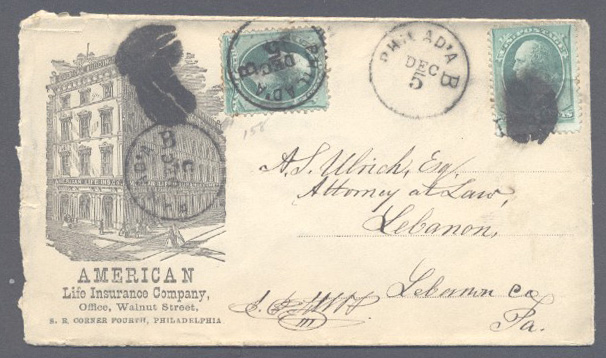 PHILAD'A
DEC
5
B
PHILAD'A
DEC
5
B
U.S. POSTAGE
B
DEC
5
AMERICAN LIFE INS. CO.
A. S. Ulrich, Esq.
Attorney at Law,
Lebanon,
Lebanon Co
Pa.
AMERICAN
Life Insurance Company,
Office, Walnut Street,
S. E. CORNER FOURTH, PHILADELPHIA
158